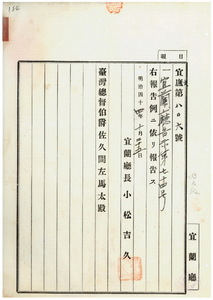 報告
宜庶第八〇六號
一宜蘭廳告示第七十四号
右報告例ニ依リ報告ス
明治四十四年
宜蘭廳長 小松吉久
臺灣總督伯爵佐久間左馬太殿
宜蘭廳